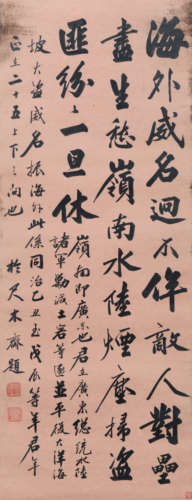 海外威名迥不侔敵人對壘
盡生愁嶺南水陸煙塵掃盜
匪紛紛一旦休
嶺南即廣東也君在廣東總統水陸
諸軍勦滅土客等匪並平復大洋海
坡大盜威名振海外此係同治乙丑至戊辰等年君年
正在二十五上下之間也
於尺木齋題